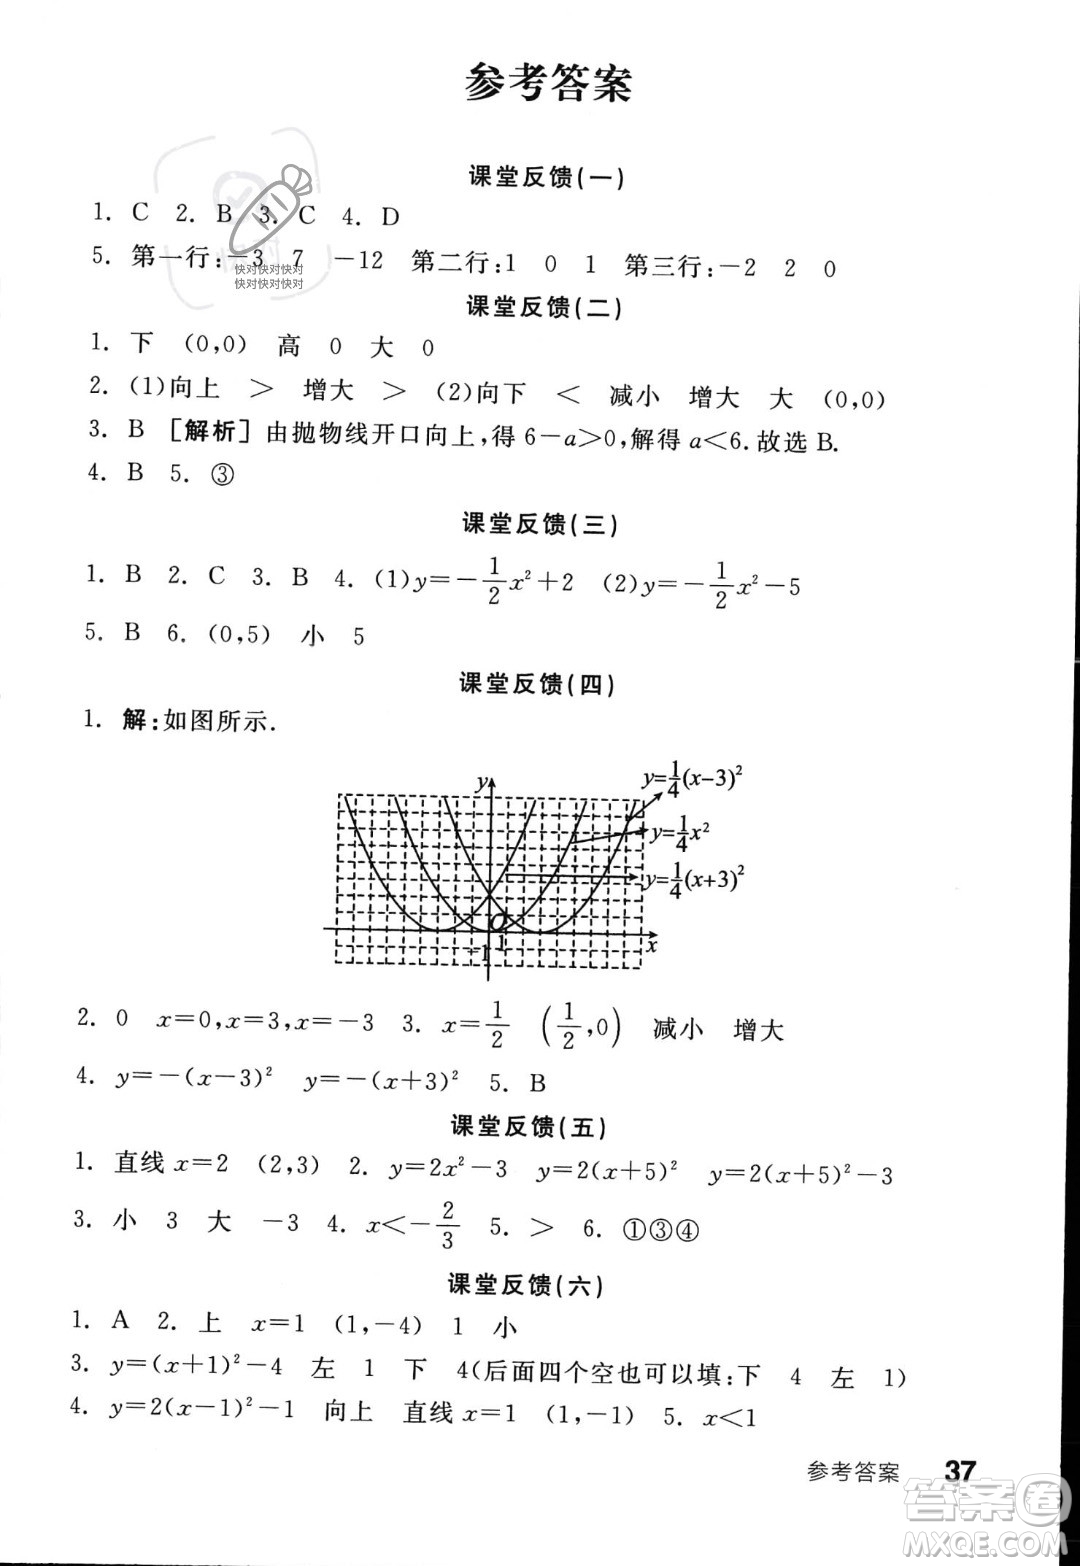 参考答案
课堂反馈(一)
1. C 2. B 3. C 4. D
5. 第一行:-3 7 -12 第二行:1 0 1 第三行:-2 2 0
快对快对快对
快对快对快对
课堂反馈(二)
1. 下 (0,0) 高 0 大 0
2. (1)向上 > 增大 > (2)向下 < 减小 增大 大 (0,0)
3. B [解析]由抛物线开口向上,得 6-a>0,解得 a<6.故选 B.
4. B 5. ③
课堂反馈(三)
1. B 2. C 3. B 4. (1)y=-1/2x²+2 (2)y=-1/2x²-5
5. B 6. (0,5) 小 5
课堂反馈(四)
1. 解:如图所示.
y
y=1/4(x-3)²
y=1/4x²
y=1/4(x+3)²
O
-1 1 x
2. 0 x=0,x=3,x=-3 3. x=1/2 (1/2,0) 减小 增大
4. y=-(x-3)² y=-(x+3)² 5. B
课堂反馈(五)
1. 直线 x=2 (2,3) 2. y=2x²-3 y=2(x+5)² y=2(x+5)²-3
3. 小 3 大 -3 4. x<-2/3 5. > 6. ①③④
课堂反馈(六)
1. A 2. 上 x=1 (1,-4) 1 小
3. y=(x+1)²-4 左 1 下 4(后面四个空也可以填:下 4 左 1)
4. y=2(x-1)²-1 向上 直线 x=1 (1,-1) 5. x<1
参考答案 37
答案卷
MXQE.COM